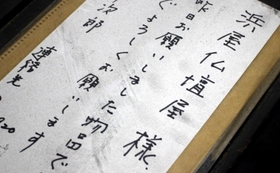 浜屋仏壇屋 様
昨日お願いしました物品で
ぐよろしくお願いします
次郎
連絡先 920